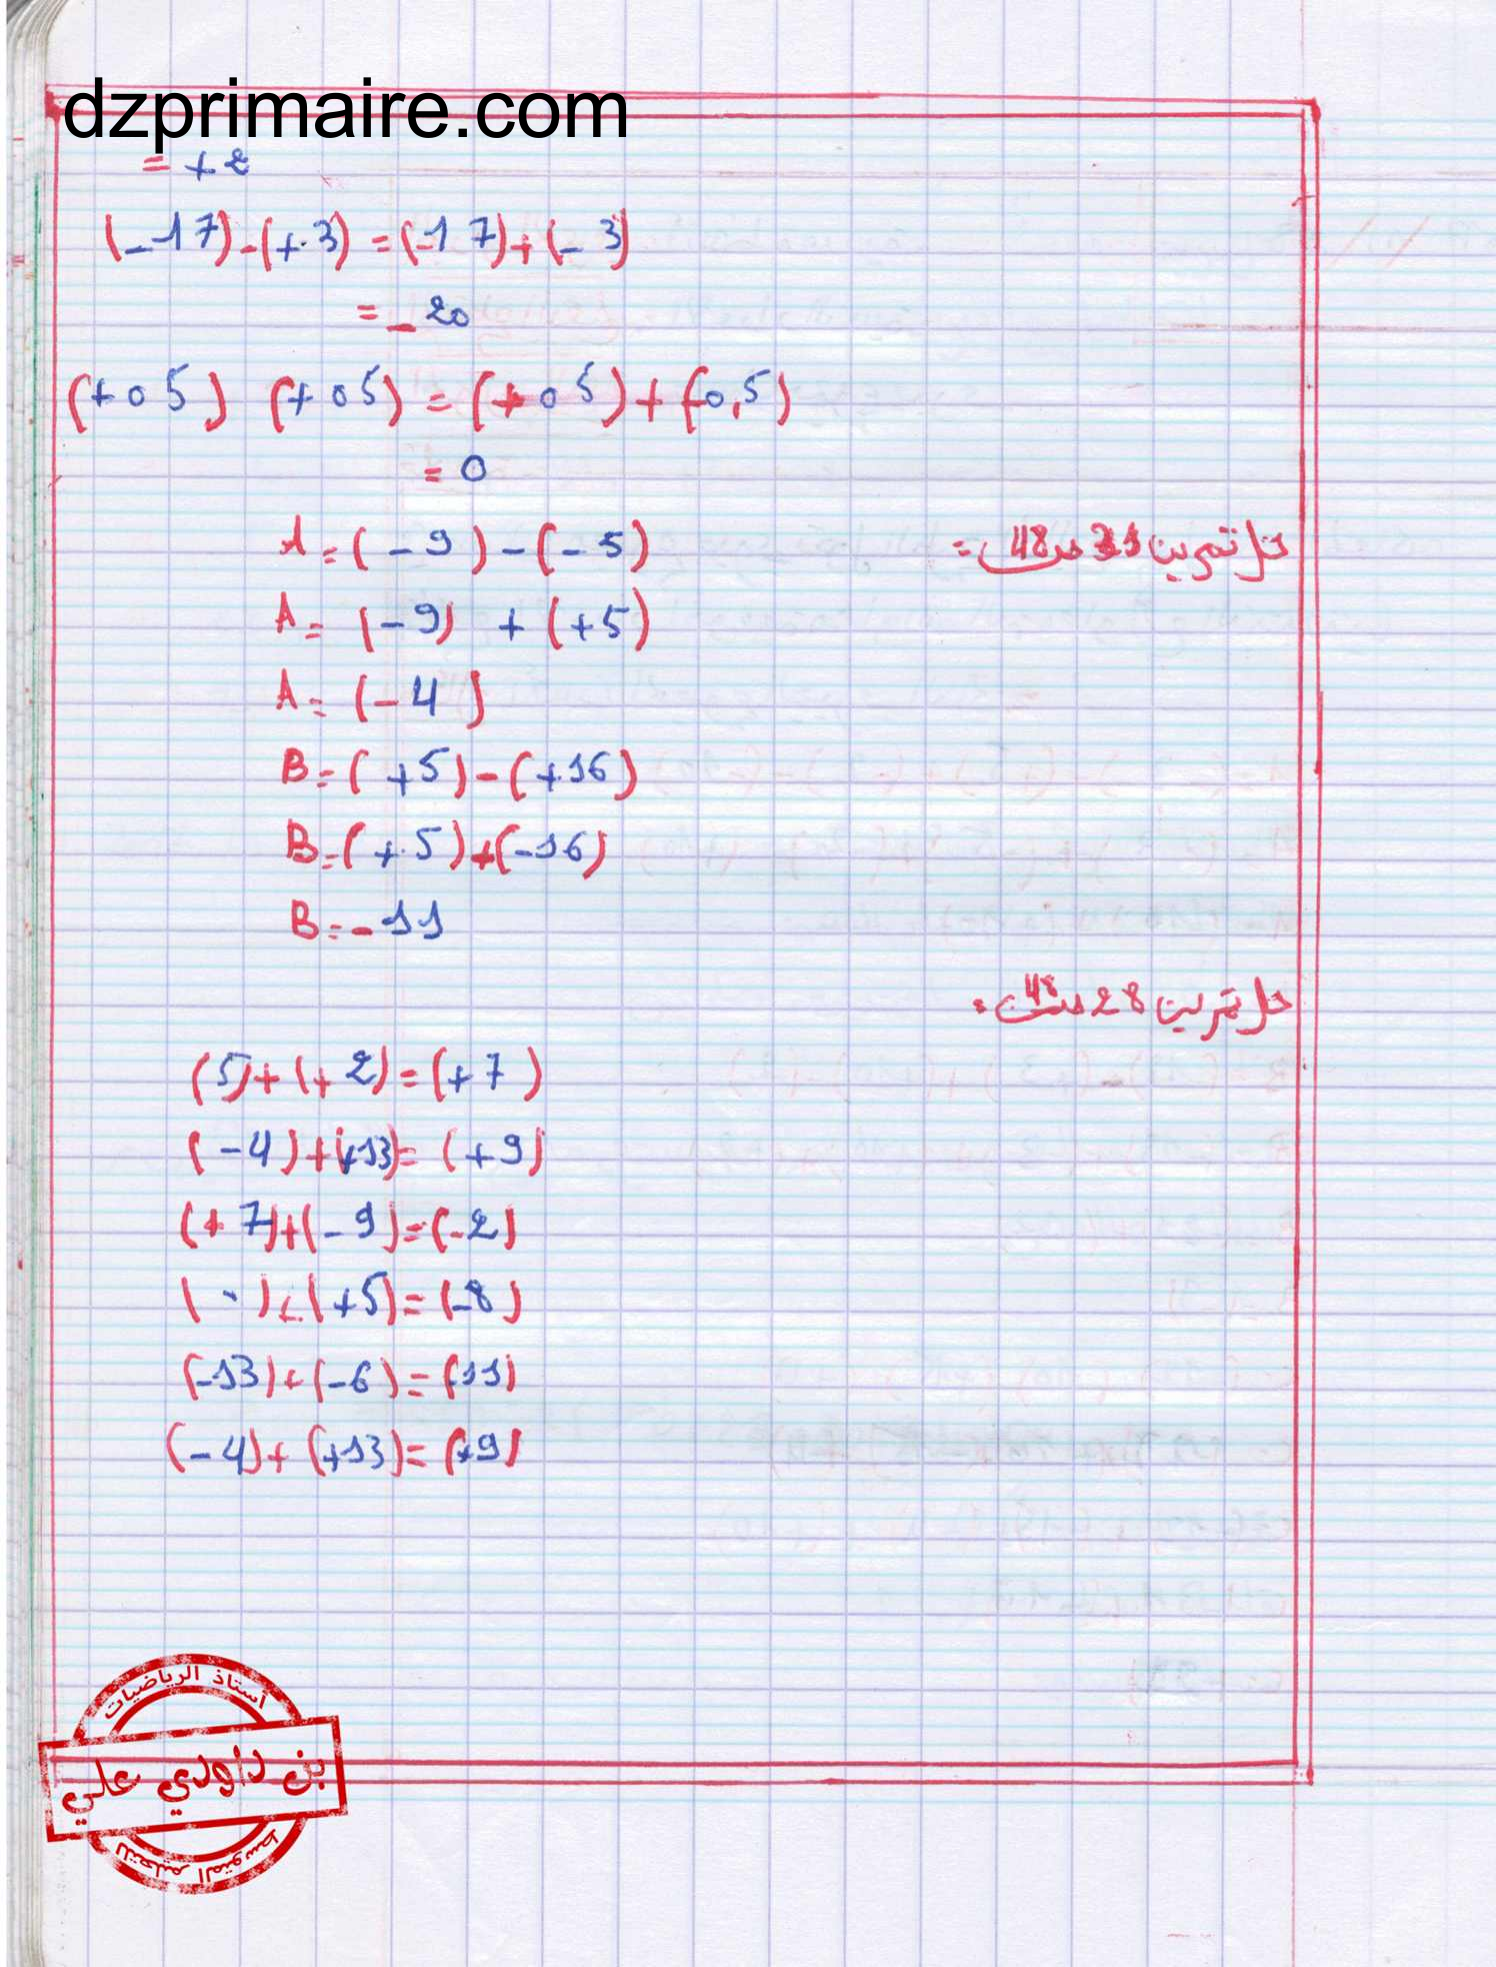 dzprimaire.com
= +2
(-17)-(+3) = (-17)+(-3)
= -20
(+05) (+05) = (+05)+(-0,5)
= 0
حل تمرين 31 ص 48 =
A = (-9) - (-5)
A = (-9) + (+5)
A = (-4)
B = (+5) - (+16)
B = (+5)+(-16)
B = -11
حل تمرين 28 ص 48 =
(5)+(+2)=(+7)
(-4)+(+13)=(+9)
(+7)+(-9)=(-2)
(-)+(+5)=(-8)
(-13)+(-6)=(11)
(-4)+(+13)=(+9)
أستاذ الرياضيات
بن داودي علي
للتعليم المتوسط